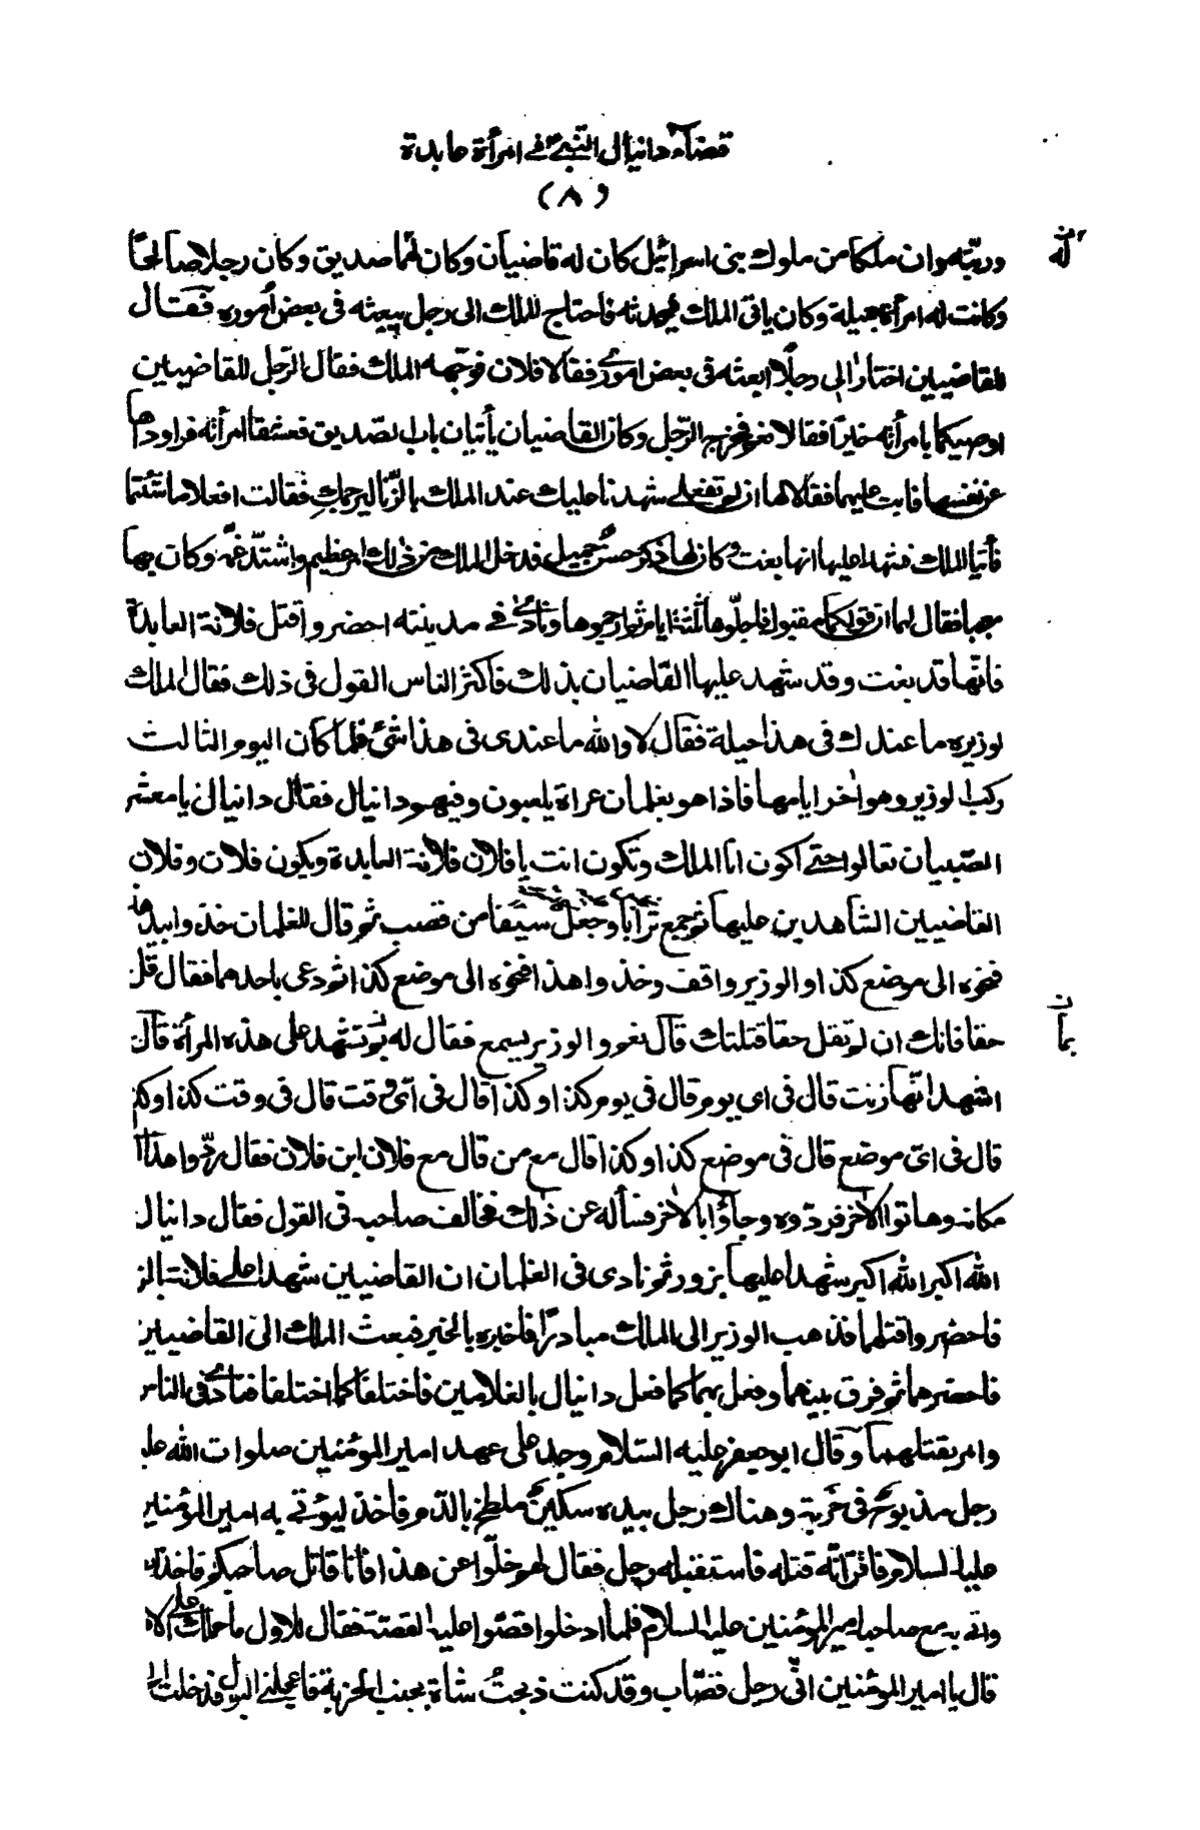 قضاء دانيال النبي في امرأة عابدة
(٨)
وربّته وان ملكا من ملوك بنى اسرائيل كان له قاضيان وكان لهما صديق وكان رجلا صالحًا
وكانت له امرأة جميلة وكان ياتى الملك فيحدثه فاحتاج الملك الى رجل يبعثه فى بعض أموره فقال
للقاضيين اختارا الى رجلًا ابعثه فى بعض امورى فقالا فلان فوجّهه الملك فقال الرّجل للقاضيين
اوصيكما بامرأتى خيرًا فقالا نعم فخرج الرّجل وكان القاضيان يأتيان باب الصّديق فعشقا امرأته فراوداها
عن نفسها فابت عليهما فقالا لها ان لم تفعلى شهدنا عليك عند الملك بالزّنا ليرجمك فقالت افعلا ما شئتما
فأتيا الملك فشهدا عليها انها بغت وكان لها ذكر حسن جميل فدخل الملك من ذلك امر عظيم واشتدّ غمّه وكان بها
معجبا فقال لهما ان قولكما مقبول فاجّلوها ثلثة ايام ثم ارجموها ونادى فى مدينته احضروا قتل فلانة العابدة
فانّها قد بغت وقد شهد عليها القاضيان بذلك فاكثر الناس القول فى ذلك فقال الملك
لوزيره ما عندك فى هذا حيلة فقال لا والله ما عندى فى هذا شئ فلما كان اليوم الثالث
ركب الوزير وهو اخر ايامها فاذا هو بغلمان عراة يلعبون وفيهم دانيال فقال دانيال يا معشر
الصّبيان تعالوا حتى اكون انا الملك وتكون انت يا فلان فلانة العابدة ويكون فلان وفلان
القاضيين الشاهدين عليها ثم جمع ترابا وجعل سيفا من قصب ثم قال للغلمان خذوا بيد هذا
فنحّوه الى موضع كذا والوزير واقف وخذوا هذا فنحّوه الى موضع كذا ثم دعى باحدهما فقال قل
حقا فانك ان لم تقل حقا قتلتك قال نعم والوزير يسمع فقال له بم تشهد على هذه المرأة قال
اشهد انّها زنت قال فى اى يوم قال فى يوم كذا وكذا قال فى اىّ وقت قال فى وقت كذا وكذا
قال فى اىّ موضع قال فى موضع كذا وكذا قال مع من قال مع فلان ابن فلان فقال ردّوا هذا الى
مكانه وهاتوا الاخر فردّوه وجاؤا بالاخر فسأله عن ذلك فخالف صاحبه فى القول فقال دانيال
الله اكبر الله اكبر شهدا عليها بزور ثم نادى فى الغلمان ان القاضيين شهدا على فلانة بالزور
فاحضروا قتلهما فذهب الوزير الى الملك مبادرًا فاخبره بالخبر فبعث الملك الى القاضيين
فاحضرهما ثم فرق بينهما وفعل بهما كما فعل دانيال بالغلامين فاختلفا كما اختلفا فنادى فى الناس
وامر بقتلهما وقال ابو جعفر عليه السّلام وجد على عهد امير المؤمنين صلوات الله عليه
رجل مذبوح فى خربة وهناك رجل بيده سكين ملطخ بالدّم فاخذ ليؤتى به امير المؤمنين
عليه السلام فاقرّ انّه قتله فاستقبله رجل فقال لهم خلّوا عن هذا فانا قاتل صاحبكم فاخذ
واتى به مع صاحبه امير المؤمنين عليه السلام فلما ادخلوا قصّوا عليه القصة فقال للاول ما حملك على الا
قال يا امير المؤمنين انّى رجل قصّاب وقد كنت ذبحت شاة بجنب الخربة فاعجلنى البول فدخلت